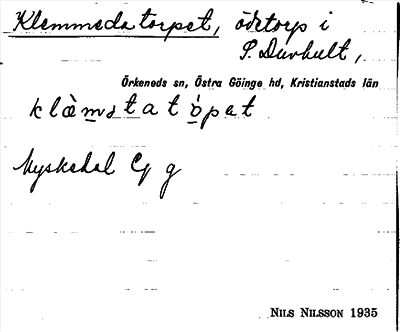 Klemmedatorpet, ödetorp i
S. Duvhult,
Örkeneds sn, Östra Göinge hd, Kristianstads län
klæ̀mstatòpet
g
NILS NILSSON 1935